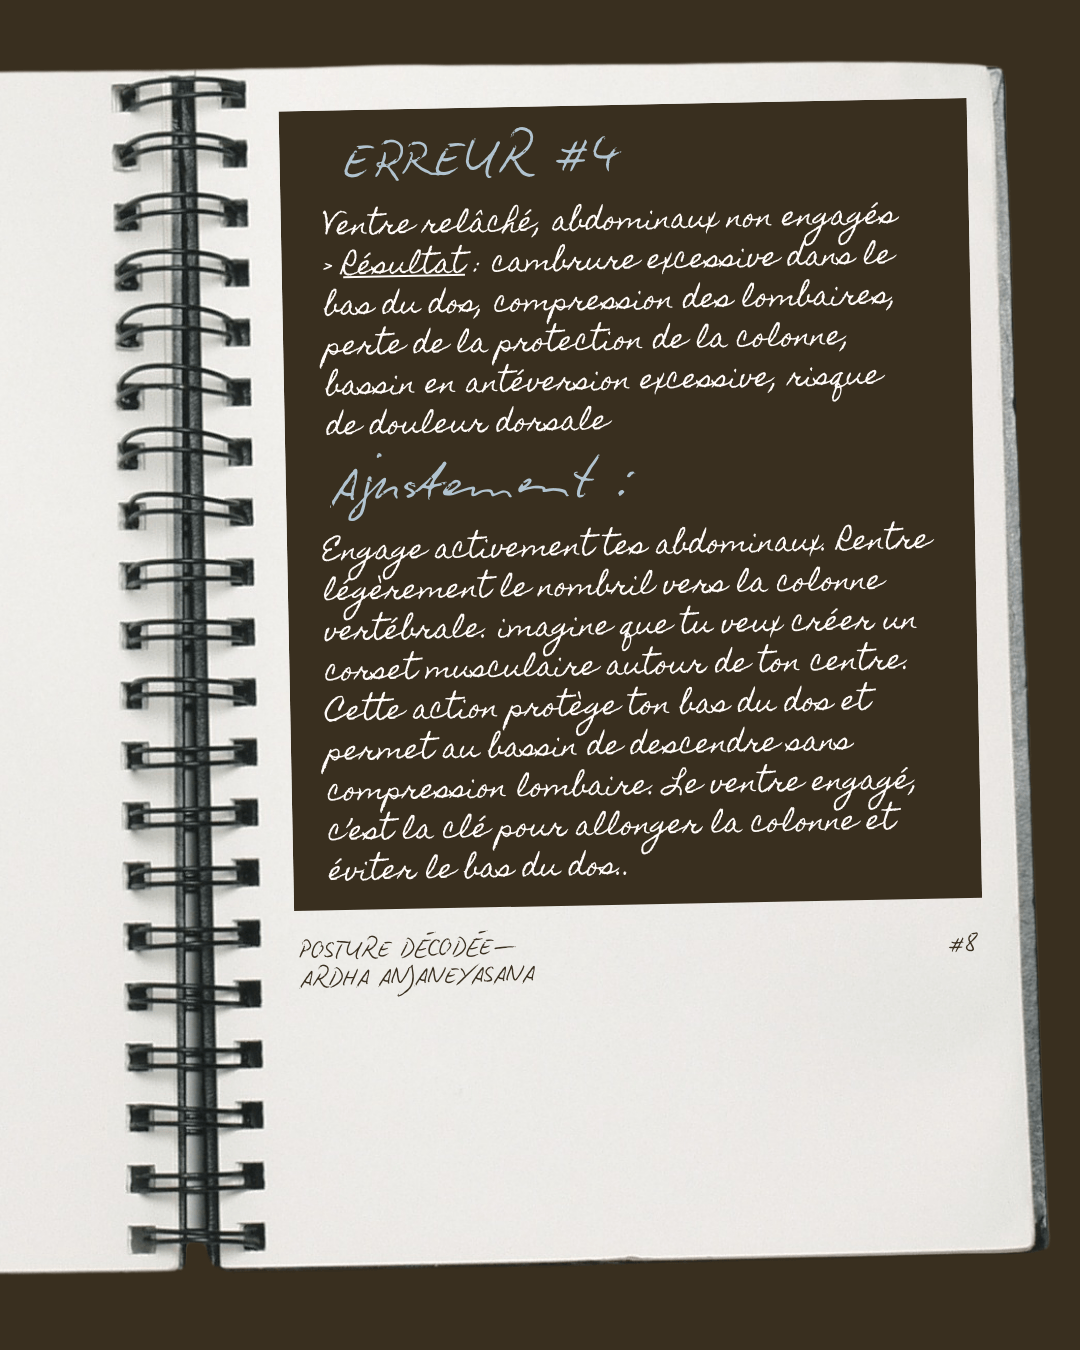 ERREUR #4
Ventre relâché, abdominaux non engagés
> Résultat : cambrure excessive dans le
bas du dos, compression des lombaires,
perte de la protection de la colonne,
bassin en antéversion excessive, risque
de douleur dorsale
Ajustement :
Engage activement tes abdominaux. Rentre
légèrement le nombril vers la colonne
vertébrale. imagine que tu veux créer un
corset musculaire autour de ton centre.
Cette action protège ton bas du dos et
permet au bassin de descendre sans
compression lombaire. Le ventre engagé,
c'est la clé pour allonger la colonne et
éviter le bas du dos..
POSTURE DÉCODÉE—
ARDHA ANJANEYASANA
#8